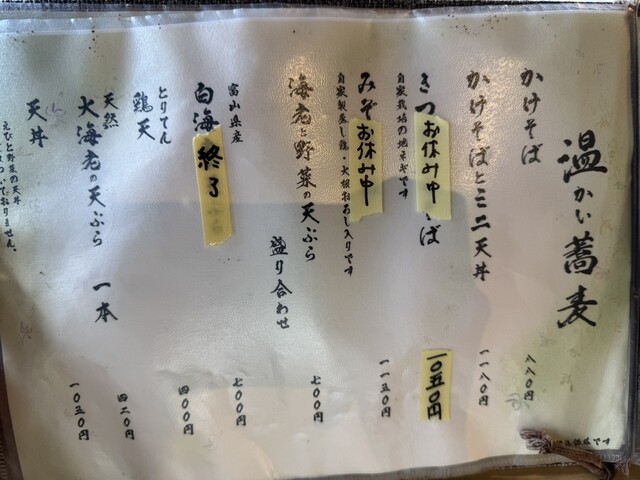 温かい蕎麦
かけそば
八八〇円
かけそばとミニ天丼
一一八〇円
きつ お休み中 そば
自家栽培の地ネギです
一〇五〇円
みぞ お休み中
自家製蒸し鶏・大根おろし入りです
一一五〇円
海老と野菜の天ぷら
盛り合わせ
七〇〇円
富山県産
白海 終了
七〇〇円
とりてん
鶏天
四〇〇円
天然
大海老の天ぷら 一本
四二〇円
天丼
えびと野菜の天丼
ておりません。
一〇五〇円
です